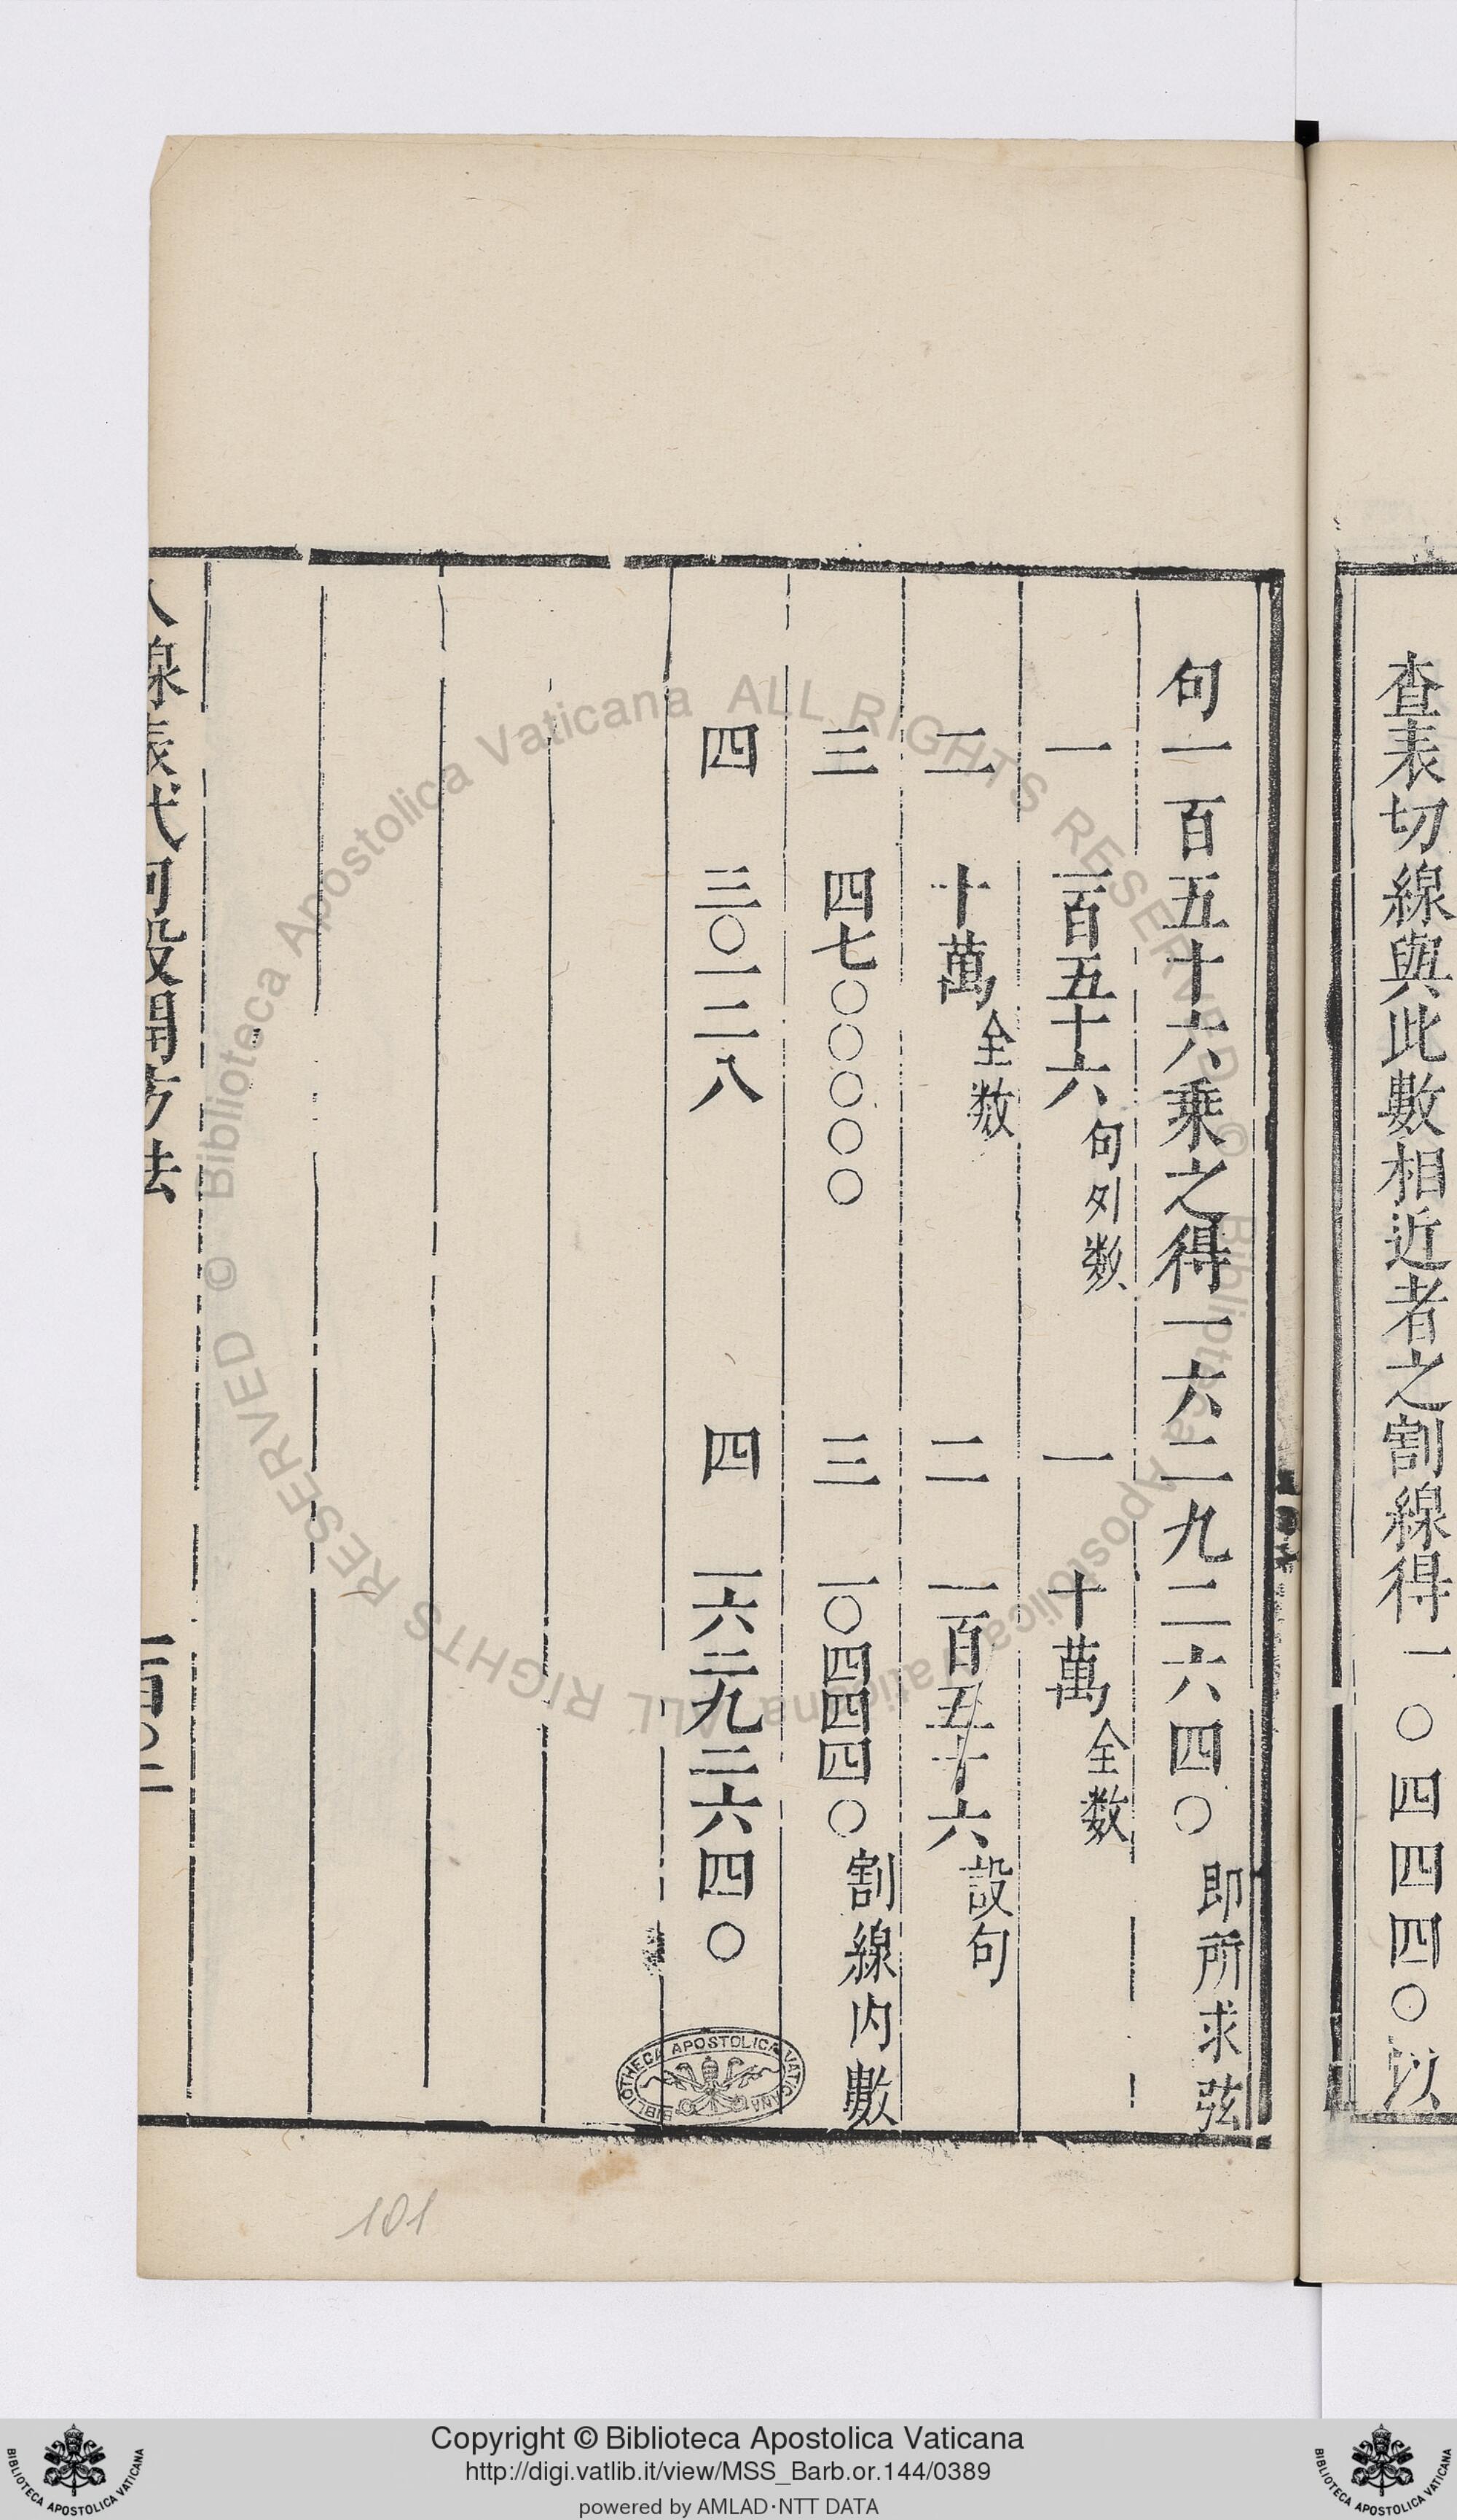 查表切線與此數相近者之割線得一〇四四四〇以
句一百五十六乘之得一六二九二六四〇即所求弦
一 一百五十六句列数 一 十萬全数
二 十萬全数 二 一百五十六設句
三 四七〇〇〇〇〇 三 一〇四四四〇割線内數
四 三〇一二八 四 一六二九二六四〇
八線表代句股開方法 一百〇二
101
BIBLIOTHECA APOSTOLICA VATICANA
© Biblioteca Apostolica Vaticana ALL RIGHTS RESERVED © Biblioteca Apostolica Vaticana ALL RIGHTS RESERVED
Copyright © Biblioteca Apostolica Vaticana
http://digi.vatlib.it/view/MSS_Barb.or.144/0389
powered by AMLAD·NTT DATA
BIBLIOTECA APOSTOLICA VATICANA
BIBLIOTECA APOSTOLICA VATICANA